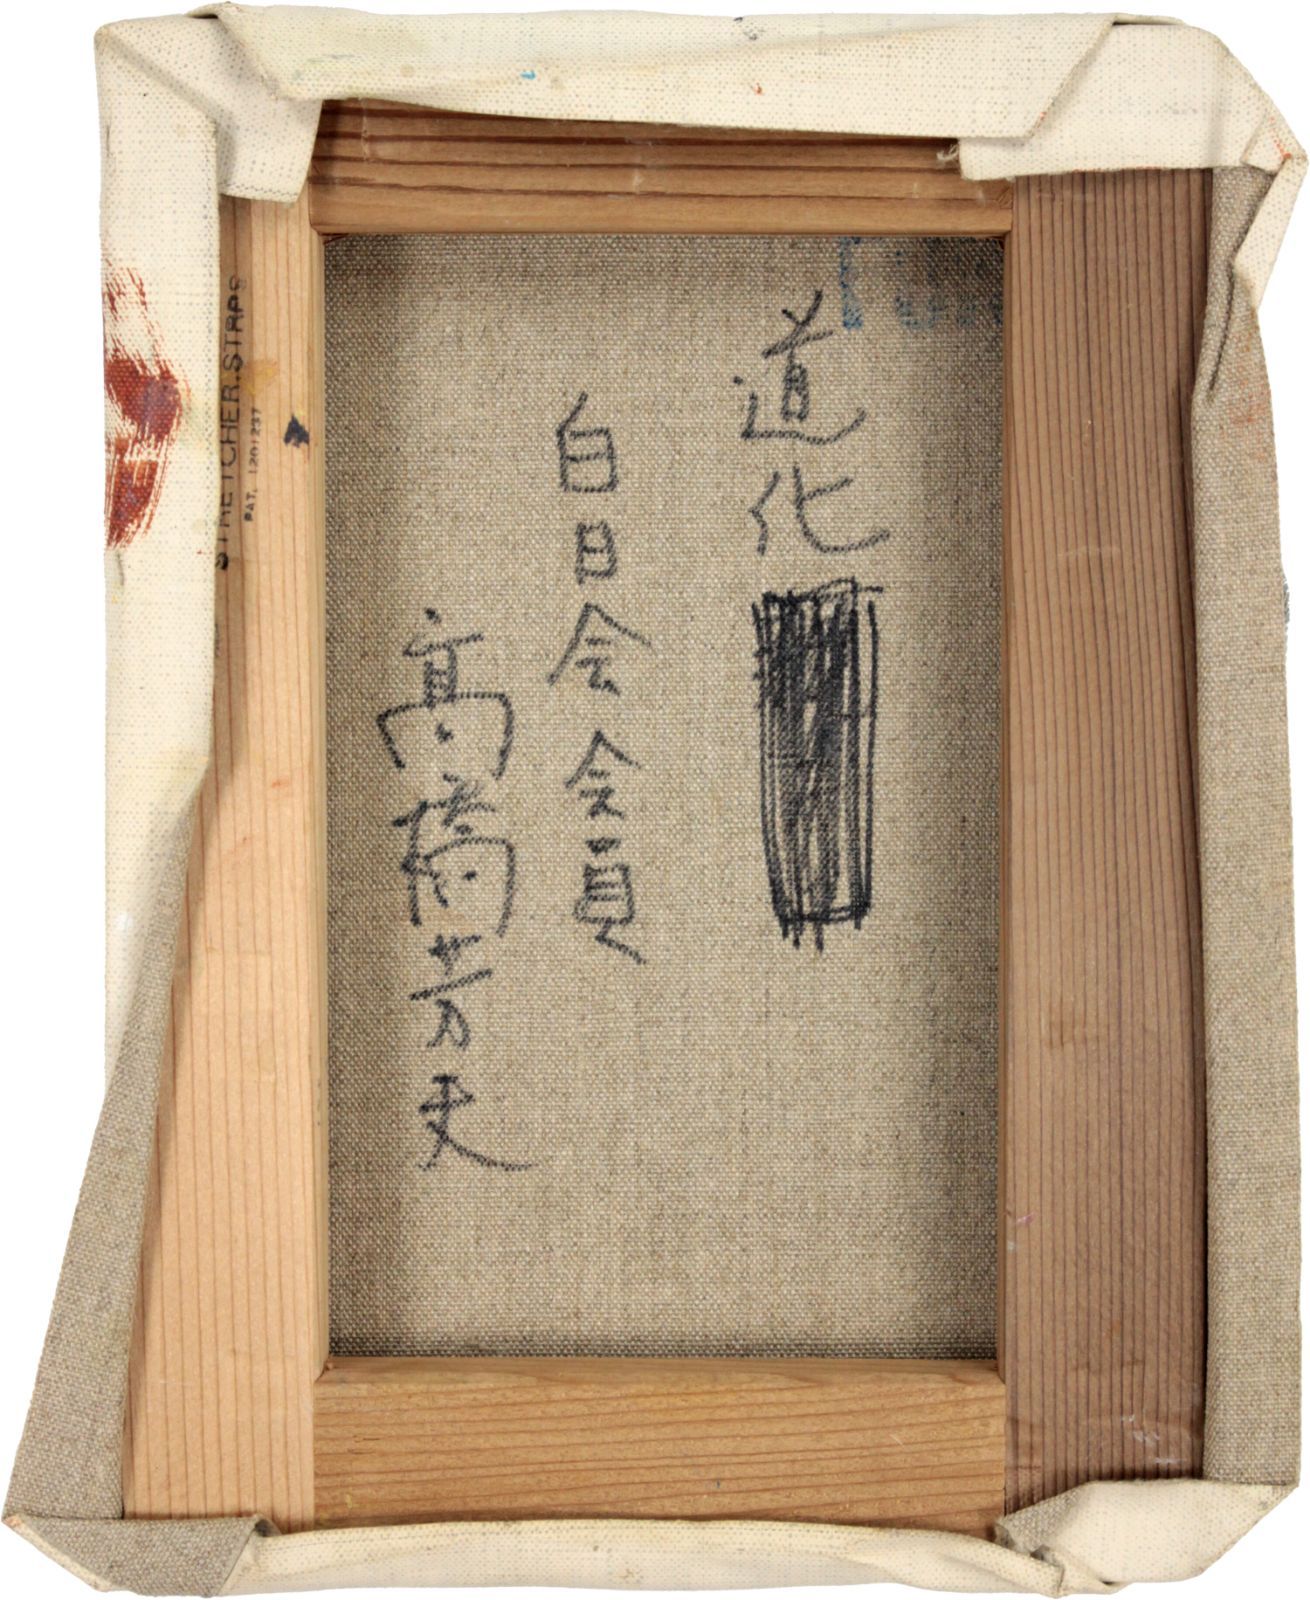 道化
白日会会員
高橋芳夫
STRETCHER.STRPS
PAT. 1201237